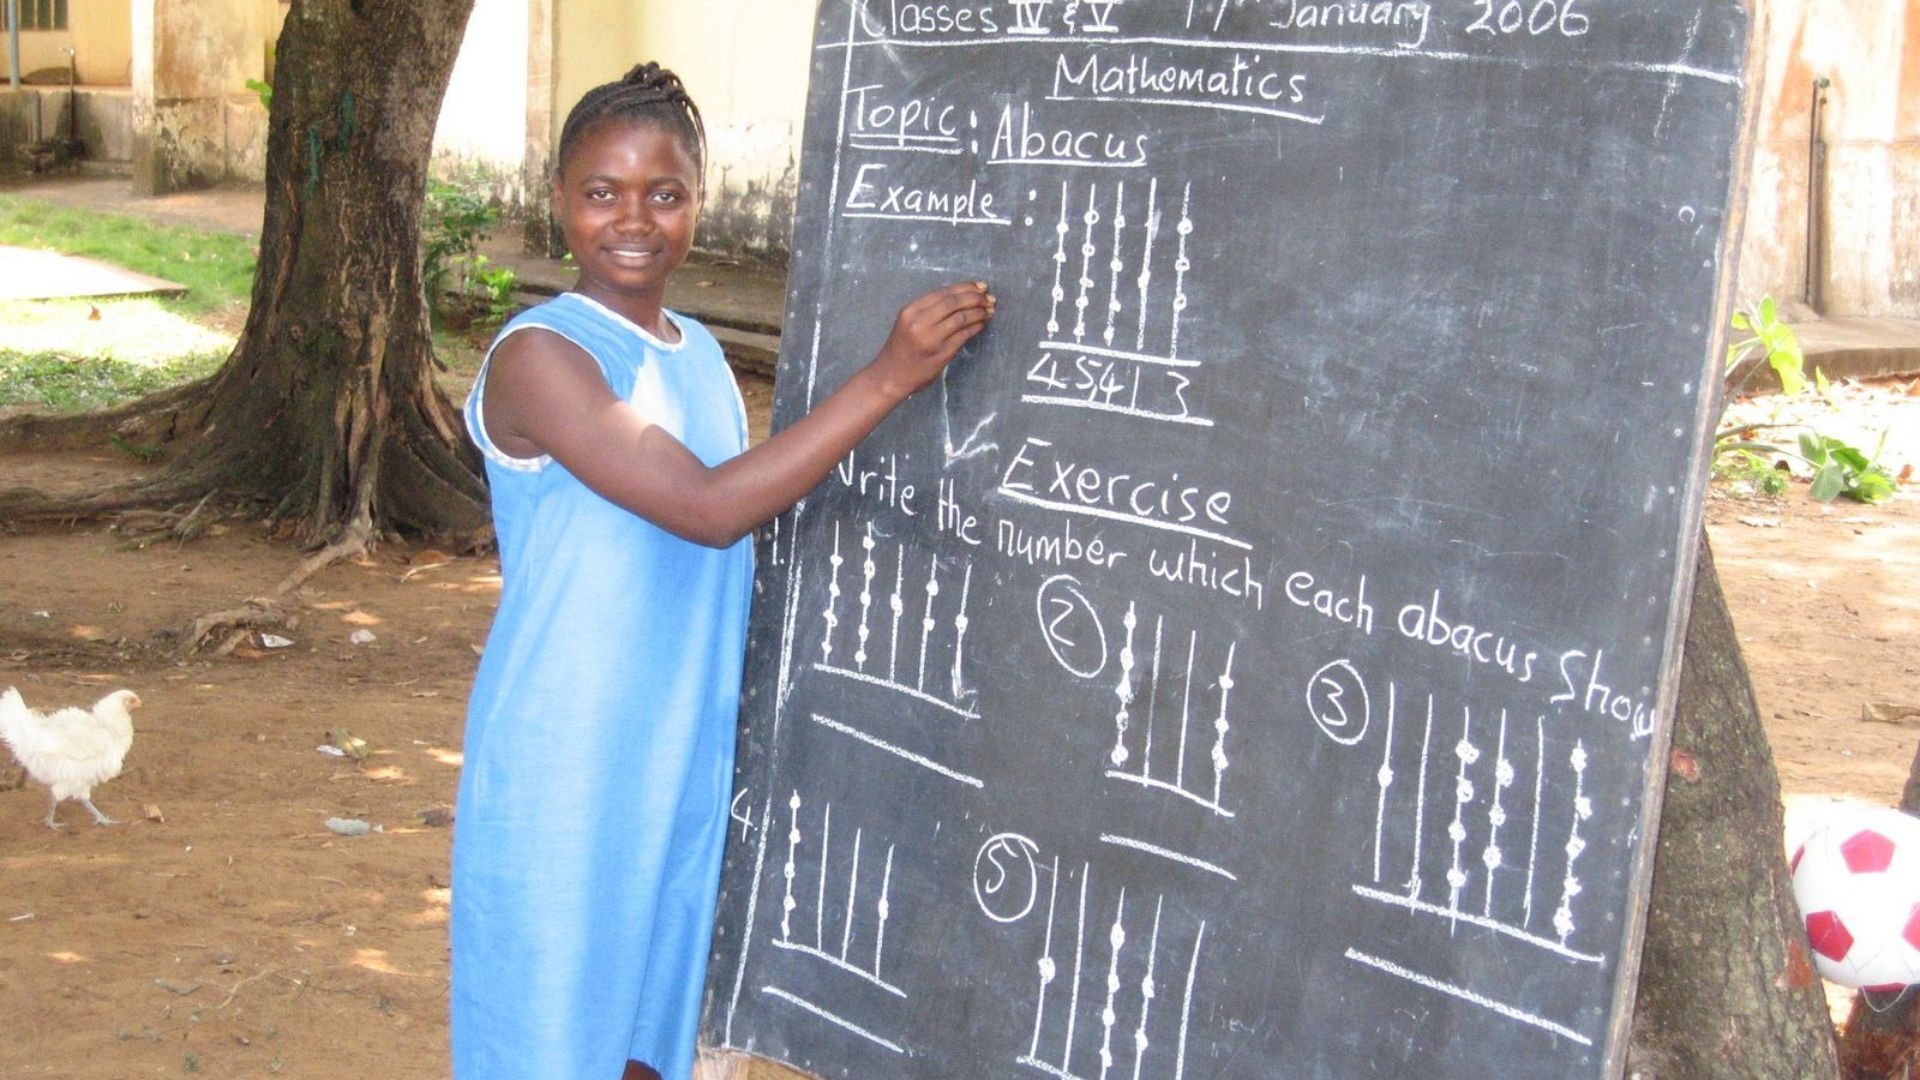 Classes IV & V 17th January 2006
Mathematics
Topic: Abacus
Example:
45,413
Exercise
Write the number which each abacus Show
1.
2
3
4.
5